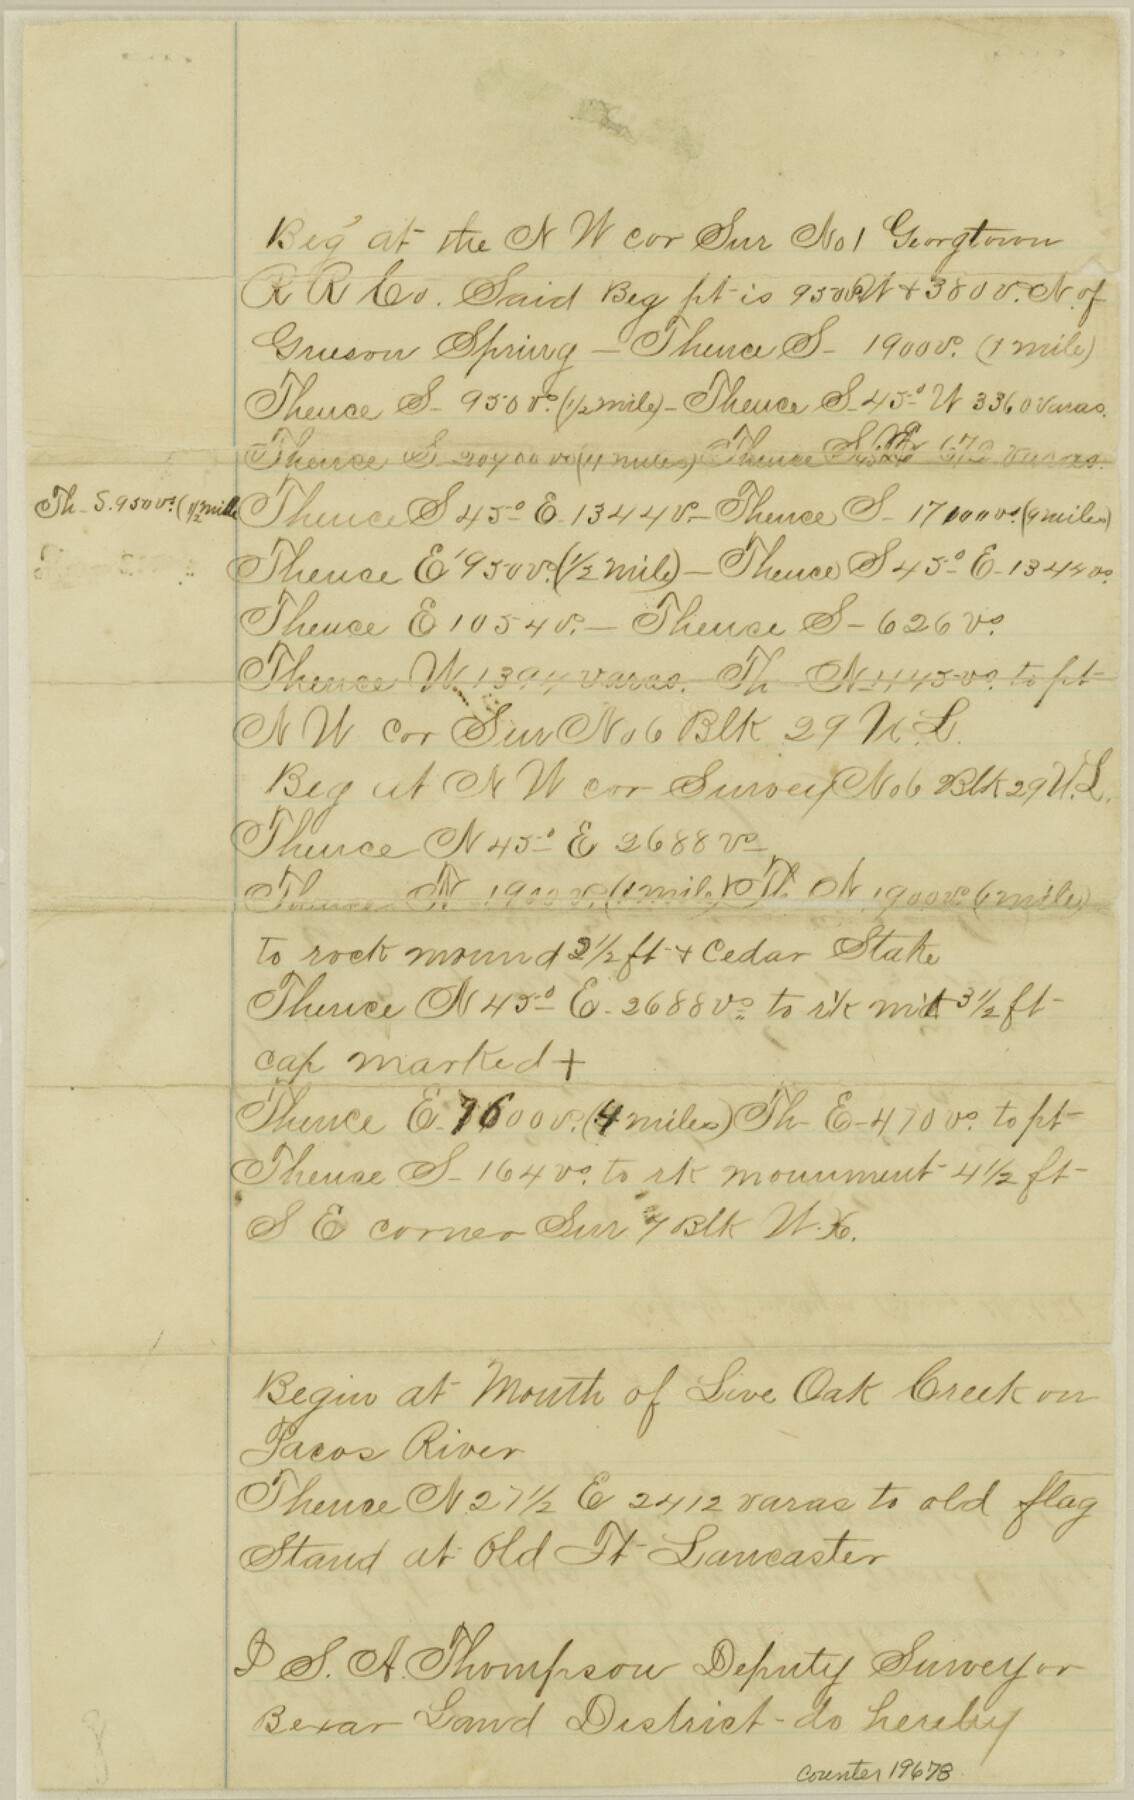 Beg' at the N W cor Sur No 1 Georgtown
R R Co. Said Beg pt is 950vs W + 380 vs. N. of
Grieson Spring — Thence S - 1900 vs. (1 mile)
Thence S - 950 vs. (1/2 mile) - Thence S - 45° W 3360 varas.
Thence S (4 miles) Thence varas.
Th - S. 950 vs. (1/2 mile
Thence S 45° E - 1344 vs - Thence S - 17100 vs. (9 miles)
Thence E 950 vs. (1/2 mile) - Thence S 45° E - 1344 vs.
Thence E 1054 vs. — Thence S - 626 vs.
Thence W. 1394 varas. Th N 1145 vs. to pt
N W cor Sur No 6 Blk 29 U. L.
Beg at N W cor Survey No 6 Blk 29 U. L.
Thence N 45° E 2688 vs
Thence N 1900 vs. (1 mile) Th N 1900 vs. (1 mile)
to rock mound 2 1/2 ft + Cedar Stake
Thence N 45° E - 2688 vs. to rk md 3 1/2 ft
cap marked +
Thence E - 7600 vs. (4 miles) Th E - 470 vs. to pt
Thence S - 164 vs. to rk monument 4 1/2 ft
S E corner Sur 7 Blk
Begin at Mouth of Live Oak Creek on
Pacos River
Thence N 27 1/2 E 2412 varas to old flag
Stand at Old Ft Lancaster
I S. A. Thompson Deputy Surveyor
Bexar Land District - do hereby
counter 19678